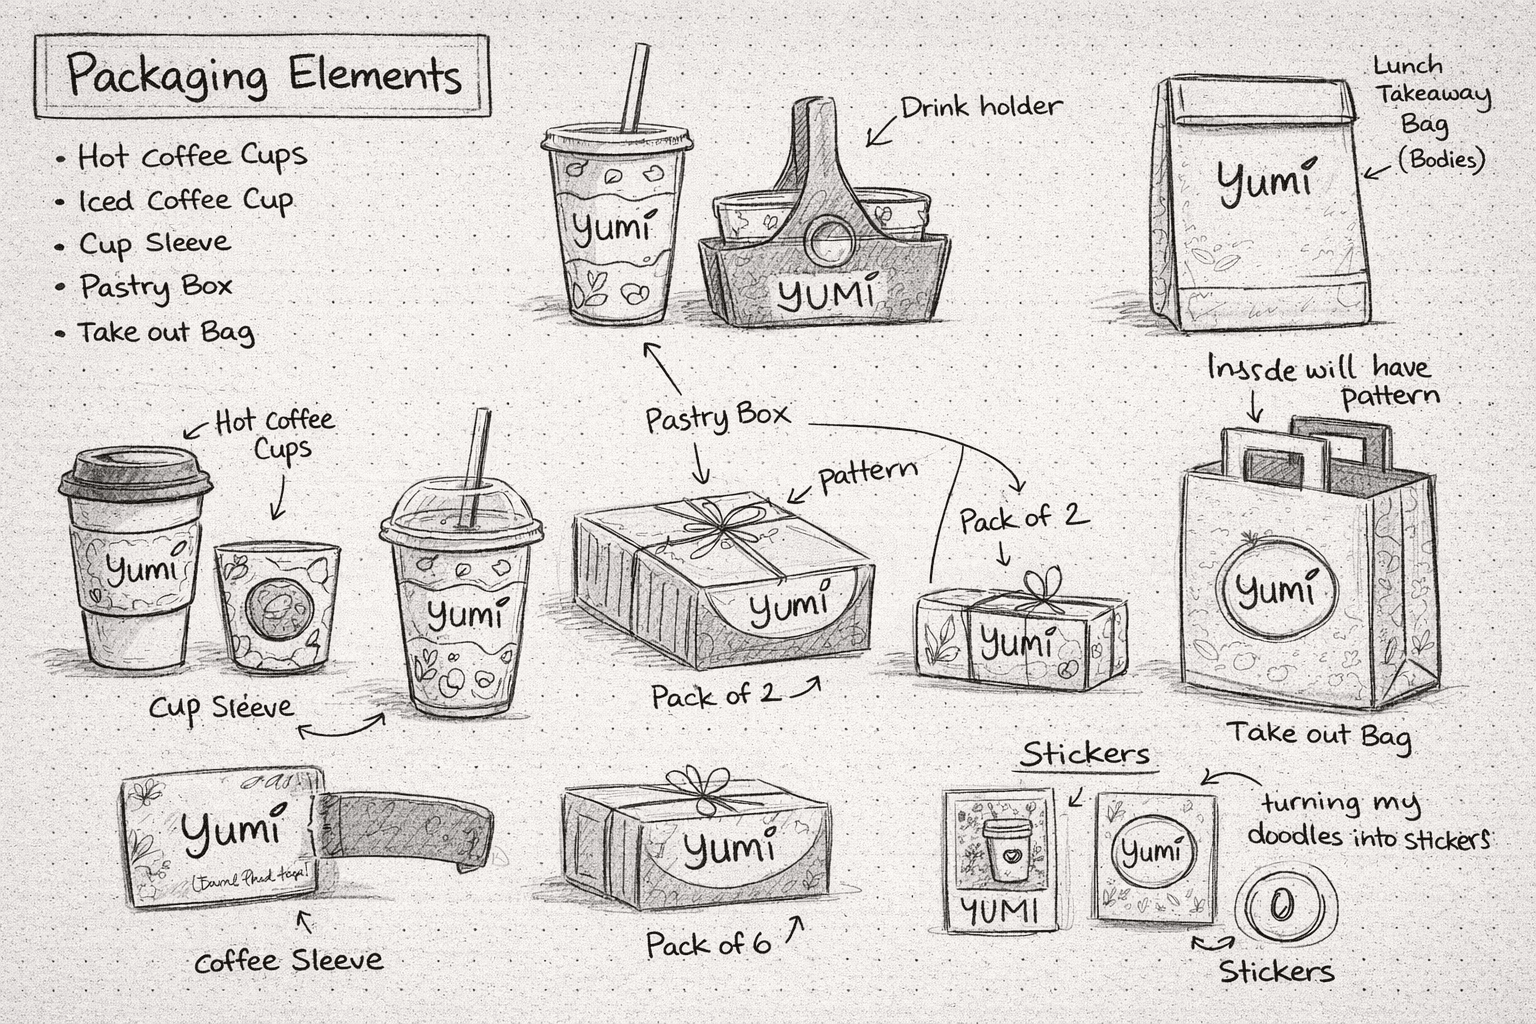 Packaging Elements
• Hot Coffee Cups
• Iced Coffee Cup
• Cup Sleeve
• Pastry Box
• Take out Bag
Yumi
Drink holder
YUMi
Lunch
Takeaway
Bag
(Bodies)
Yumi
Hot Coffee
Cups
Yumi
Yumi
Cup Sleeve
Pastry Box
pattern
Yumi
Pack of 2
Pack of 2
Yumi
Inssde will have
pattern
Yumi
Take out Bag
Yumi
Coffee Sleeve
Yumi
Pack of 6
Stickers
YUMI
Yumi
turning my
doodles into stickers
Stickers